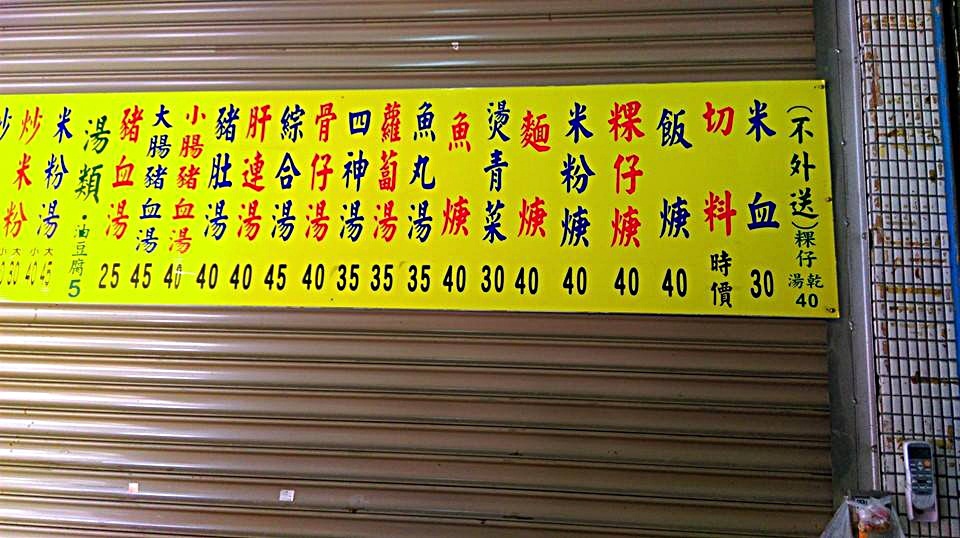 炒米粉 大30
米粉湯 小40 大45
湯類．油豆腐5
豬血湯25
大腸豬血湯45
小腸豬血湯40
豬肚湯40
肝連湯40
綜合湯45
骨仔湯40
四神湯35
蘿蔔湯35
魚丸湯35
魚焿40
燙青菜30
麵焿40
米粉焿40
粿仔焿40
飯焿40
切料時價
米血30
(不外送)粿仔湯乾40